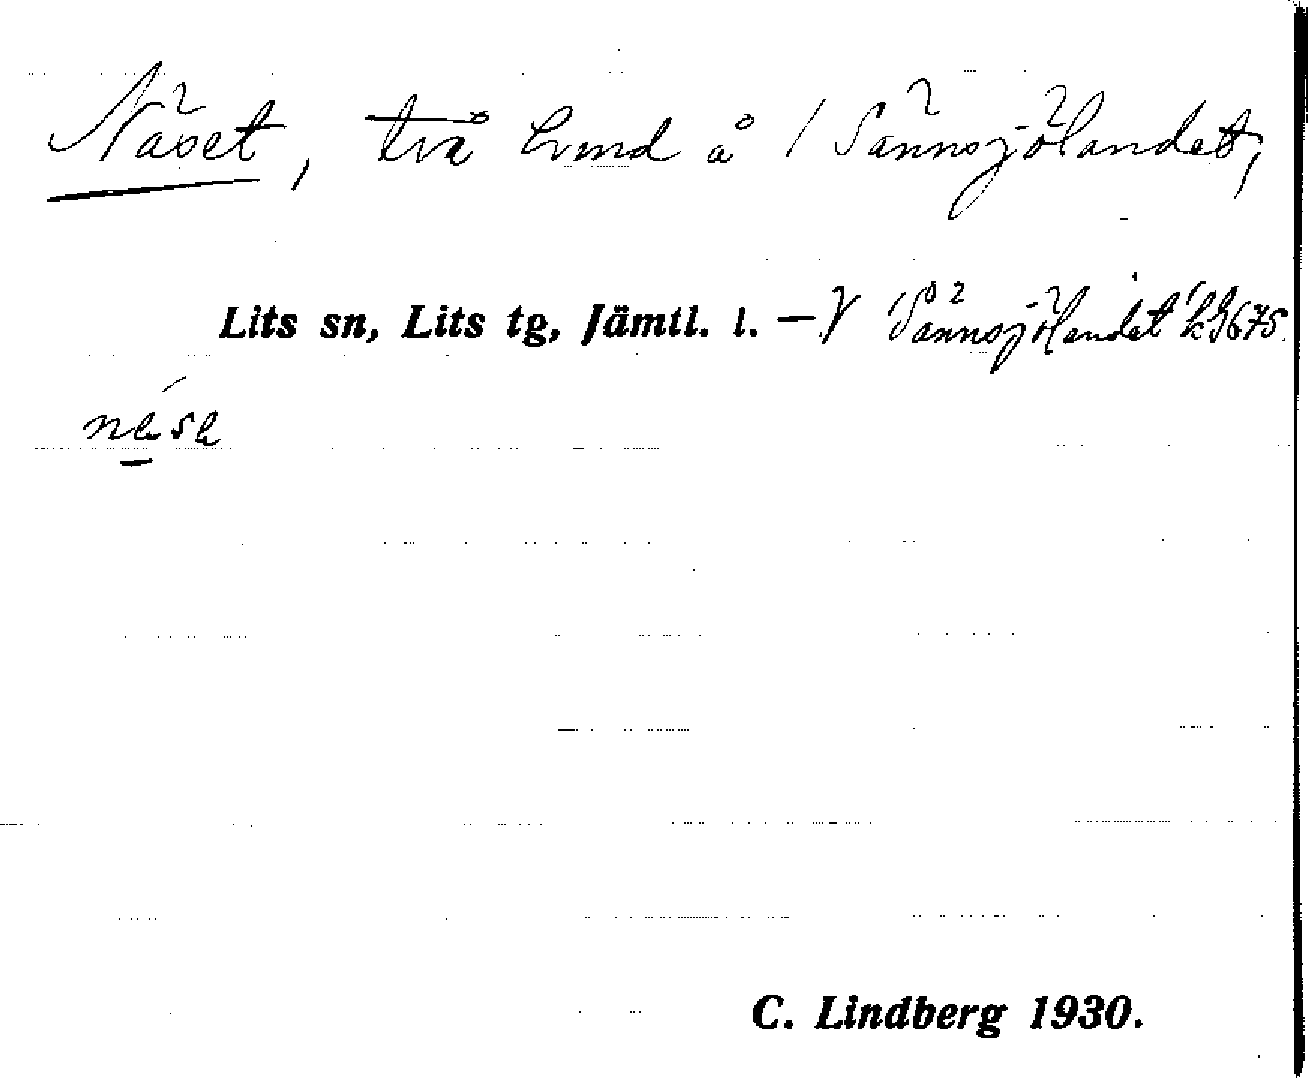 Näset, två hmd å / Sännsjölandet,
Lits sn, Lits tg, Jämtl. l. — V Sännsjölandet 675
näse
C. Lindberg 1930.